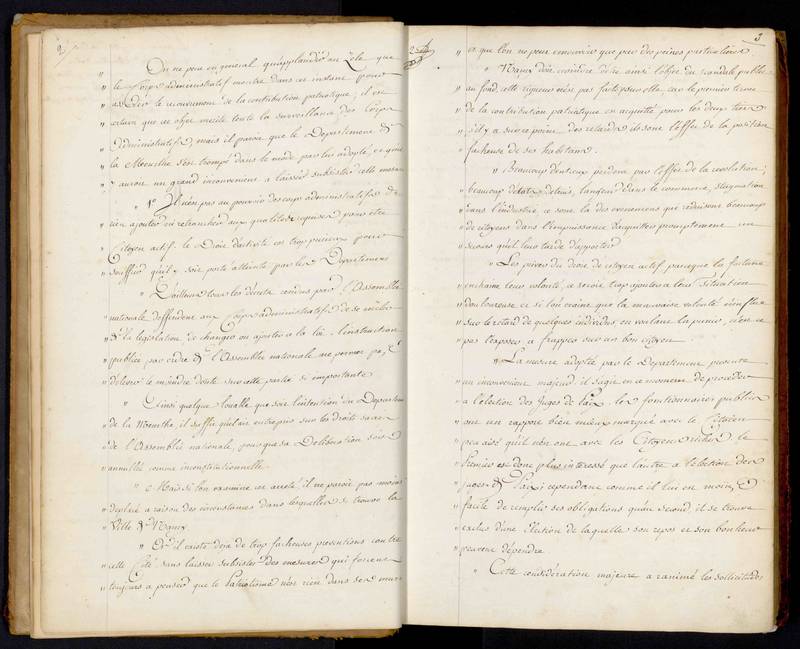 2
" On ne peut en general qu'applaudir au Zele que
" le Corps administratif montre dans cet instant pour
" le recouvrement de la contribution patriotique; il est
" certain que cet objet merite toute la surveillance des Corps
" administratifs, mais il paroit que le Departement de
" la Meurthe s'est trompé dans le mode par lui adopté, et que
" auroit un grand inconvenient a laisser subsister cette mesure
" 1° Il n'est pas au pouvoir des corps administratifs de
" rien ajouter ou retrancher aux qualités requises pour etre
" Citoyen actif. le Droit d'activité est trop precieux pour
" souffrir qu'il y soit porté atteinte par les Departemens
" D'ailleurs tous les décrets rendus par l'Assemblée
" nationale deffendent aux Corps administratifs de se mêler
" de la législation de changer ou ajouter a la loi. L'instruction
" publiée par ordre de l'Assemblée nationale ne permet pas de
" d'elever le moindre doute sur cette partie si importante
" Ainsi quelque louable que soit l'intention du Departement
" de la Meurthe, il suffit qu'il ait entrepris sur les droits
" de l'Assemblée nationale, pour que sa Deliberation soit
" annullée comme inconstitutionnelle.
" Mais si l'on examine cet arreté, il ne paroit pas moins
" deplacé a raison des circonstances dans lesquelles se trouve la
" Ville de Nancy
" Et il existe deja de trop facheuses preventions contre
" cette Cité sans laisser subsister des mesures qui forcent
" toujours a penser que le Patriotisme n'est rien dans ses murs
3
" et que l'on ne peut emouvoir que par des peines
" Nancy doit craindre d'être ainsi l'objet du scandale public
" au fond, cette rigueur n'est pas faite pour elle, car le premier tiers
" de la contribution patriotique est acquitté pour les deux tiers
" s'il y a sur ce point des retards ils sont l'effet de la position
" facheuse de ses habitans.
" Beaucoup d'entr'eux perdent par l'effet de la revolution;
" beaucoup d'etats detruits, langueur dans le commerce, stagnation
" dans l'industrie, ce sont la des evenemens qui reduisent beaucoup
" de citoyens dans l'impuissance d'acquitter promptement un
" secours qu'il leur tarde d'apporter
" Les priver du droit de citoyen actif parceque la fortune
" enchaine leur volonté, ce seroit trop ajouter a leur Situation
" douloureuse et si l'on craint que la mauvaise volonté n'influe
" sur le retard de quelques individus, en voulant la punir, n'est ce
" pas l'exposer a frapper sur un bon citoyen
" La mesure adoptée par le Departement presente
" un inconvenient majeur. il s'agit en ce moment de proceder
" a l'election des Juges de Paix. les fonctionnaires publics
" ont un rapport bien mieux marqué avec le Citoyen
" peu aisé qu'il n'en ont avec les Citoyens riches, le
" premier est donc plus interessé que l'autre a l'election des
" juges de Paix; cependant comme il lui est moins
" facile de remplir ses obligations qu'au second, il se trouve
" exclus d'une Election de laquelle son repos et son bonheur
" peuvent dépendre
" Cette considération majeure a ranimé les sollicitudes